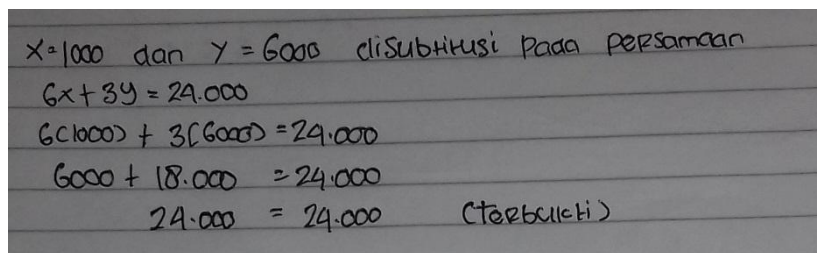 x=1000 dan y = 6000 disubtitusi pada persamaan
6x + 3y = 24.000
6(1000) + 3(6000) = 24.000
6000 + 18.000 = 24.000
24.000 = 24.000 (terbukti)